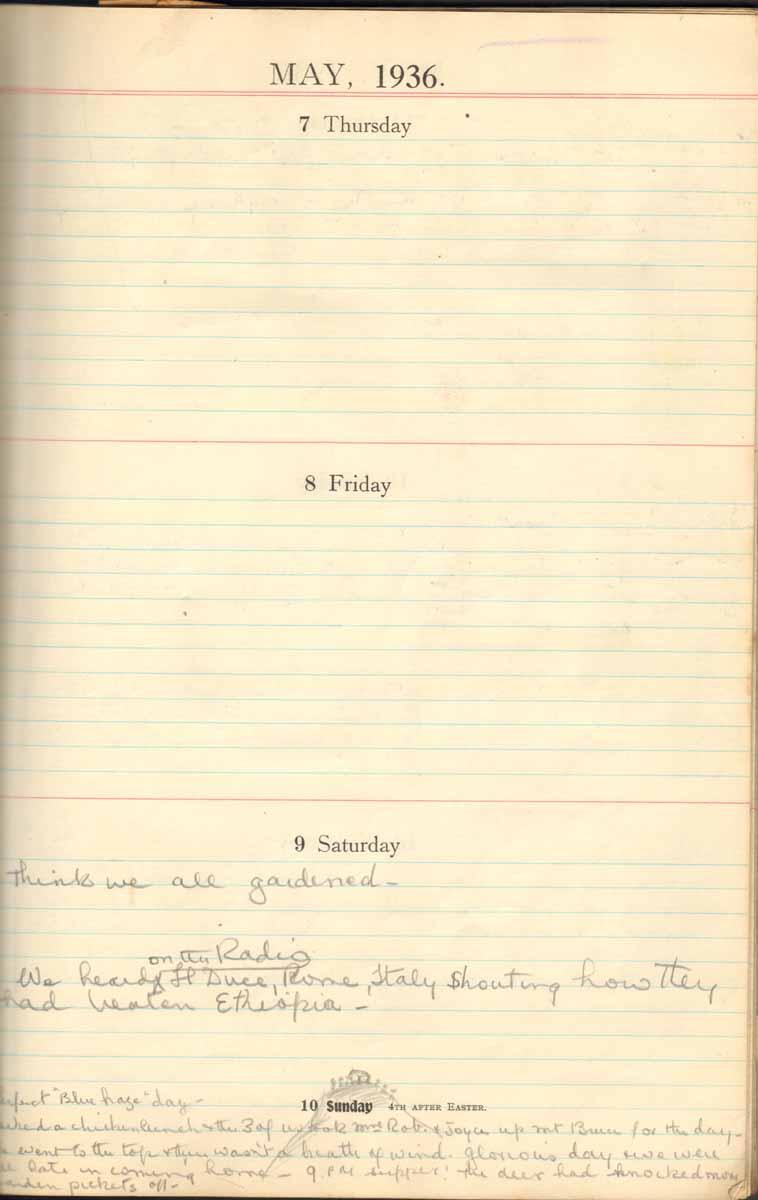 MAY, 1936.
7 Thursday
8 Friday
9 Saturday
think we all gardened -
on the Radio
We heard Il Duce, Rome, Italy shouting how they
had beaten Ethiopia -
10 Sunday 4TH AFTER EASTER.
"Blue haze" day -
a chicken lunch & the 3 of us took Mrs Rob. & Joyce up mt Bruce for the day -
went to the top & there wasn't a breath of wind. Glorious day & we were
late in coming home - 9. P.M supper! the deer had knocked more
pickets off -